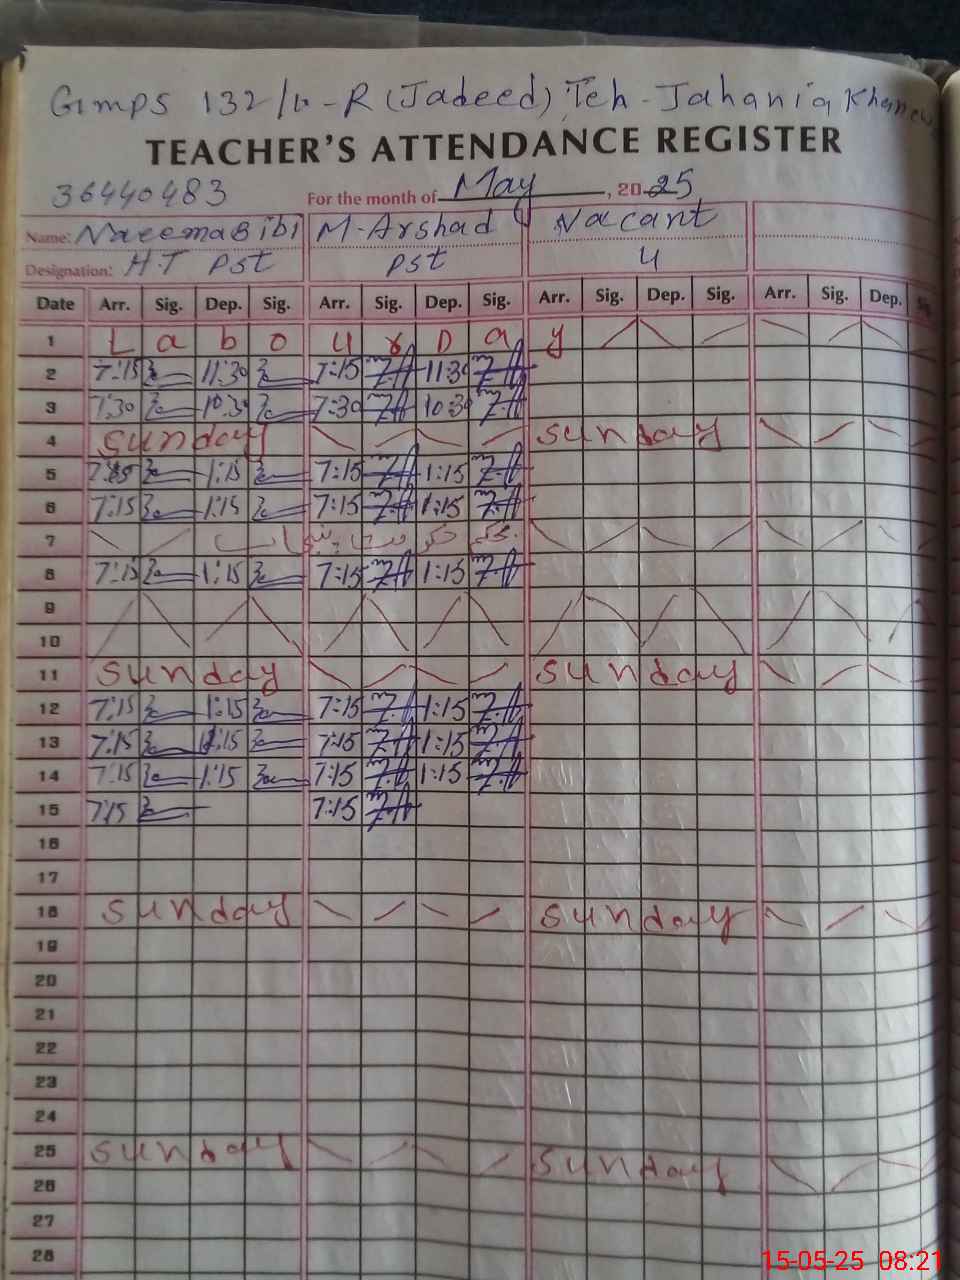 GMPS 132/10-R (Jadeed), Teh- Jahania Khanew
TEACHER'S ATTENDANCE REGISTER
36440483 For the month of May, 2025
Name: Naeema Bibi M. Arshad Vacant
Designation: H.T PST PST 4
Date Arr. Sig. Dep. Sig. Arr. Sig. Dep. Sig. Arr. Sig. Dep. Sig. Arr. Sig. Dep. Sig.
1 L a b o u r D a y
2 7:15 11:30 7:15 11:30
3 7:30 10:30 7:30 10:30
4 Sunday Sunday
5 7:15 1:15 7:15 1:15
6 7:15 1:15 7:15 1:15
7
8 7:15 1:15 7:15 1:15
9
10
11 Sunday Sunday
12 7:15 1:15 7:15 1:15
13 7:15 1:15 7:15 1:15
14 7:15 1:15 7:15 1:15
15 7:15 7:15
16
17
18 Sunday Sunday
19
20
21
22
23
24
25 Sunday Sunday
26
27
28
15-05-25 08:21